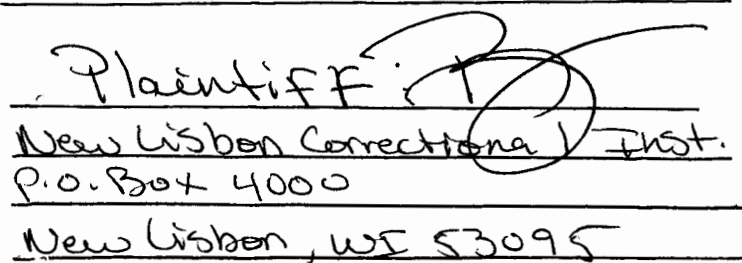 Plaintiff:
New Lisbon Correctional Inst.
P.O. Box 4000
New Lisbon, WI 53095